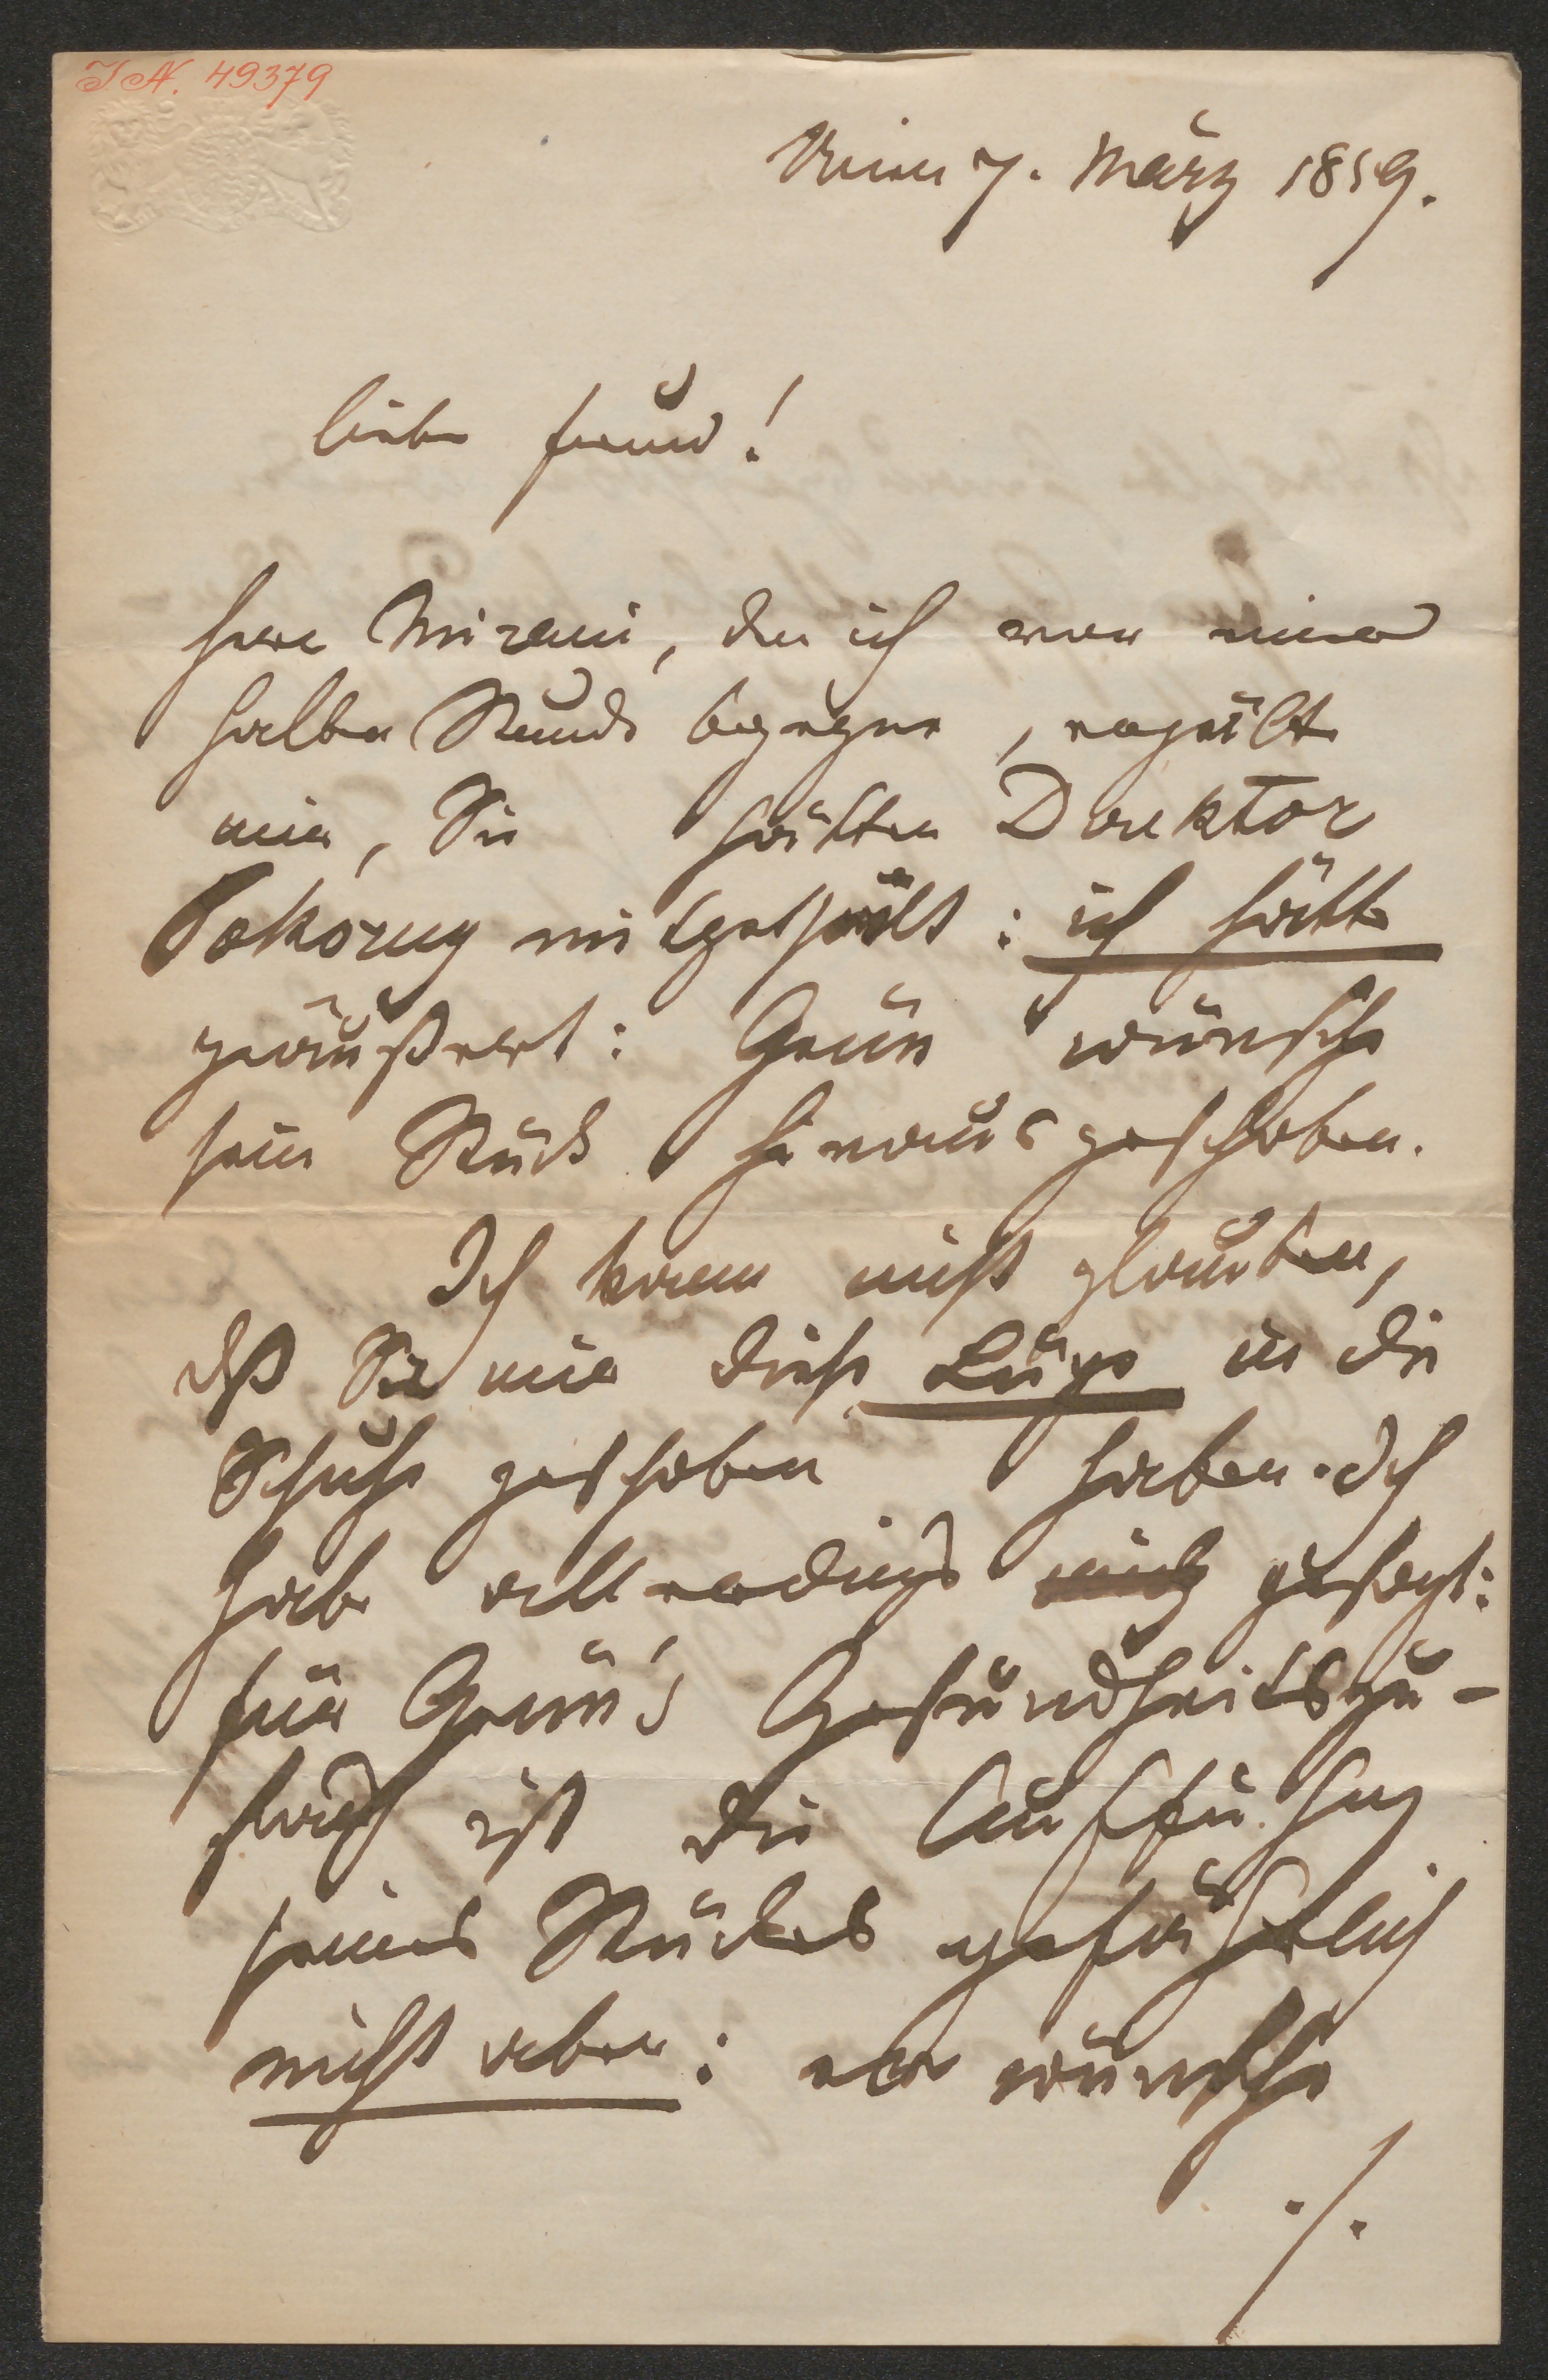 I.N. 49379
Wien 7. März 1859.
lieber Freund!
Herr Mirani, den ich vor einer
halben Stunde begegne, erzählt
mir, Sie hätten Direktor
Pokorny mitgetheilt: ich hätte
geäußert: Grün wünsche
sein Stück hinausgeschoben.
Ich kann nicht glauben,
dß Sie mir diese Lüge in die
Schuhe geschoben haben. Ich
habe allerdings gesagt:
für Grün's Gesundheitszu-
stand ist die Aufführung
seines Stückes gefährlich
nicht aber: er wünsche
./.